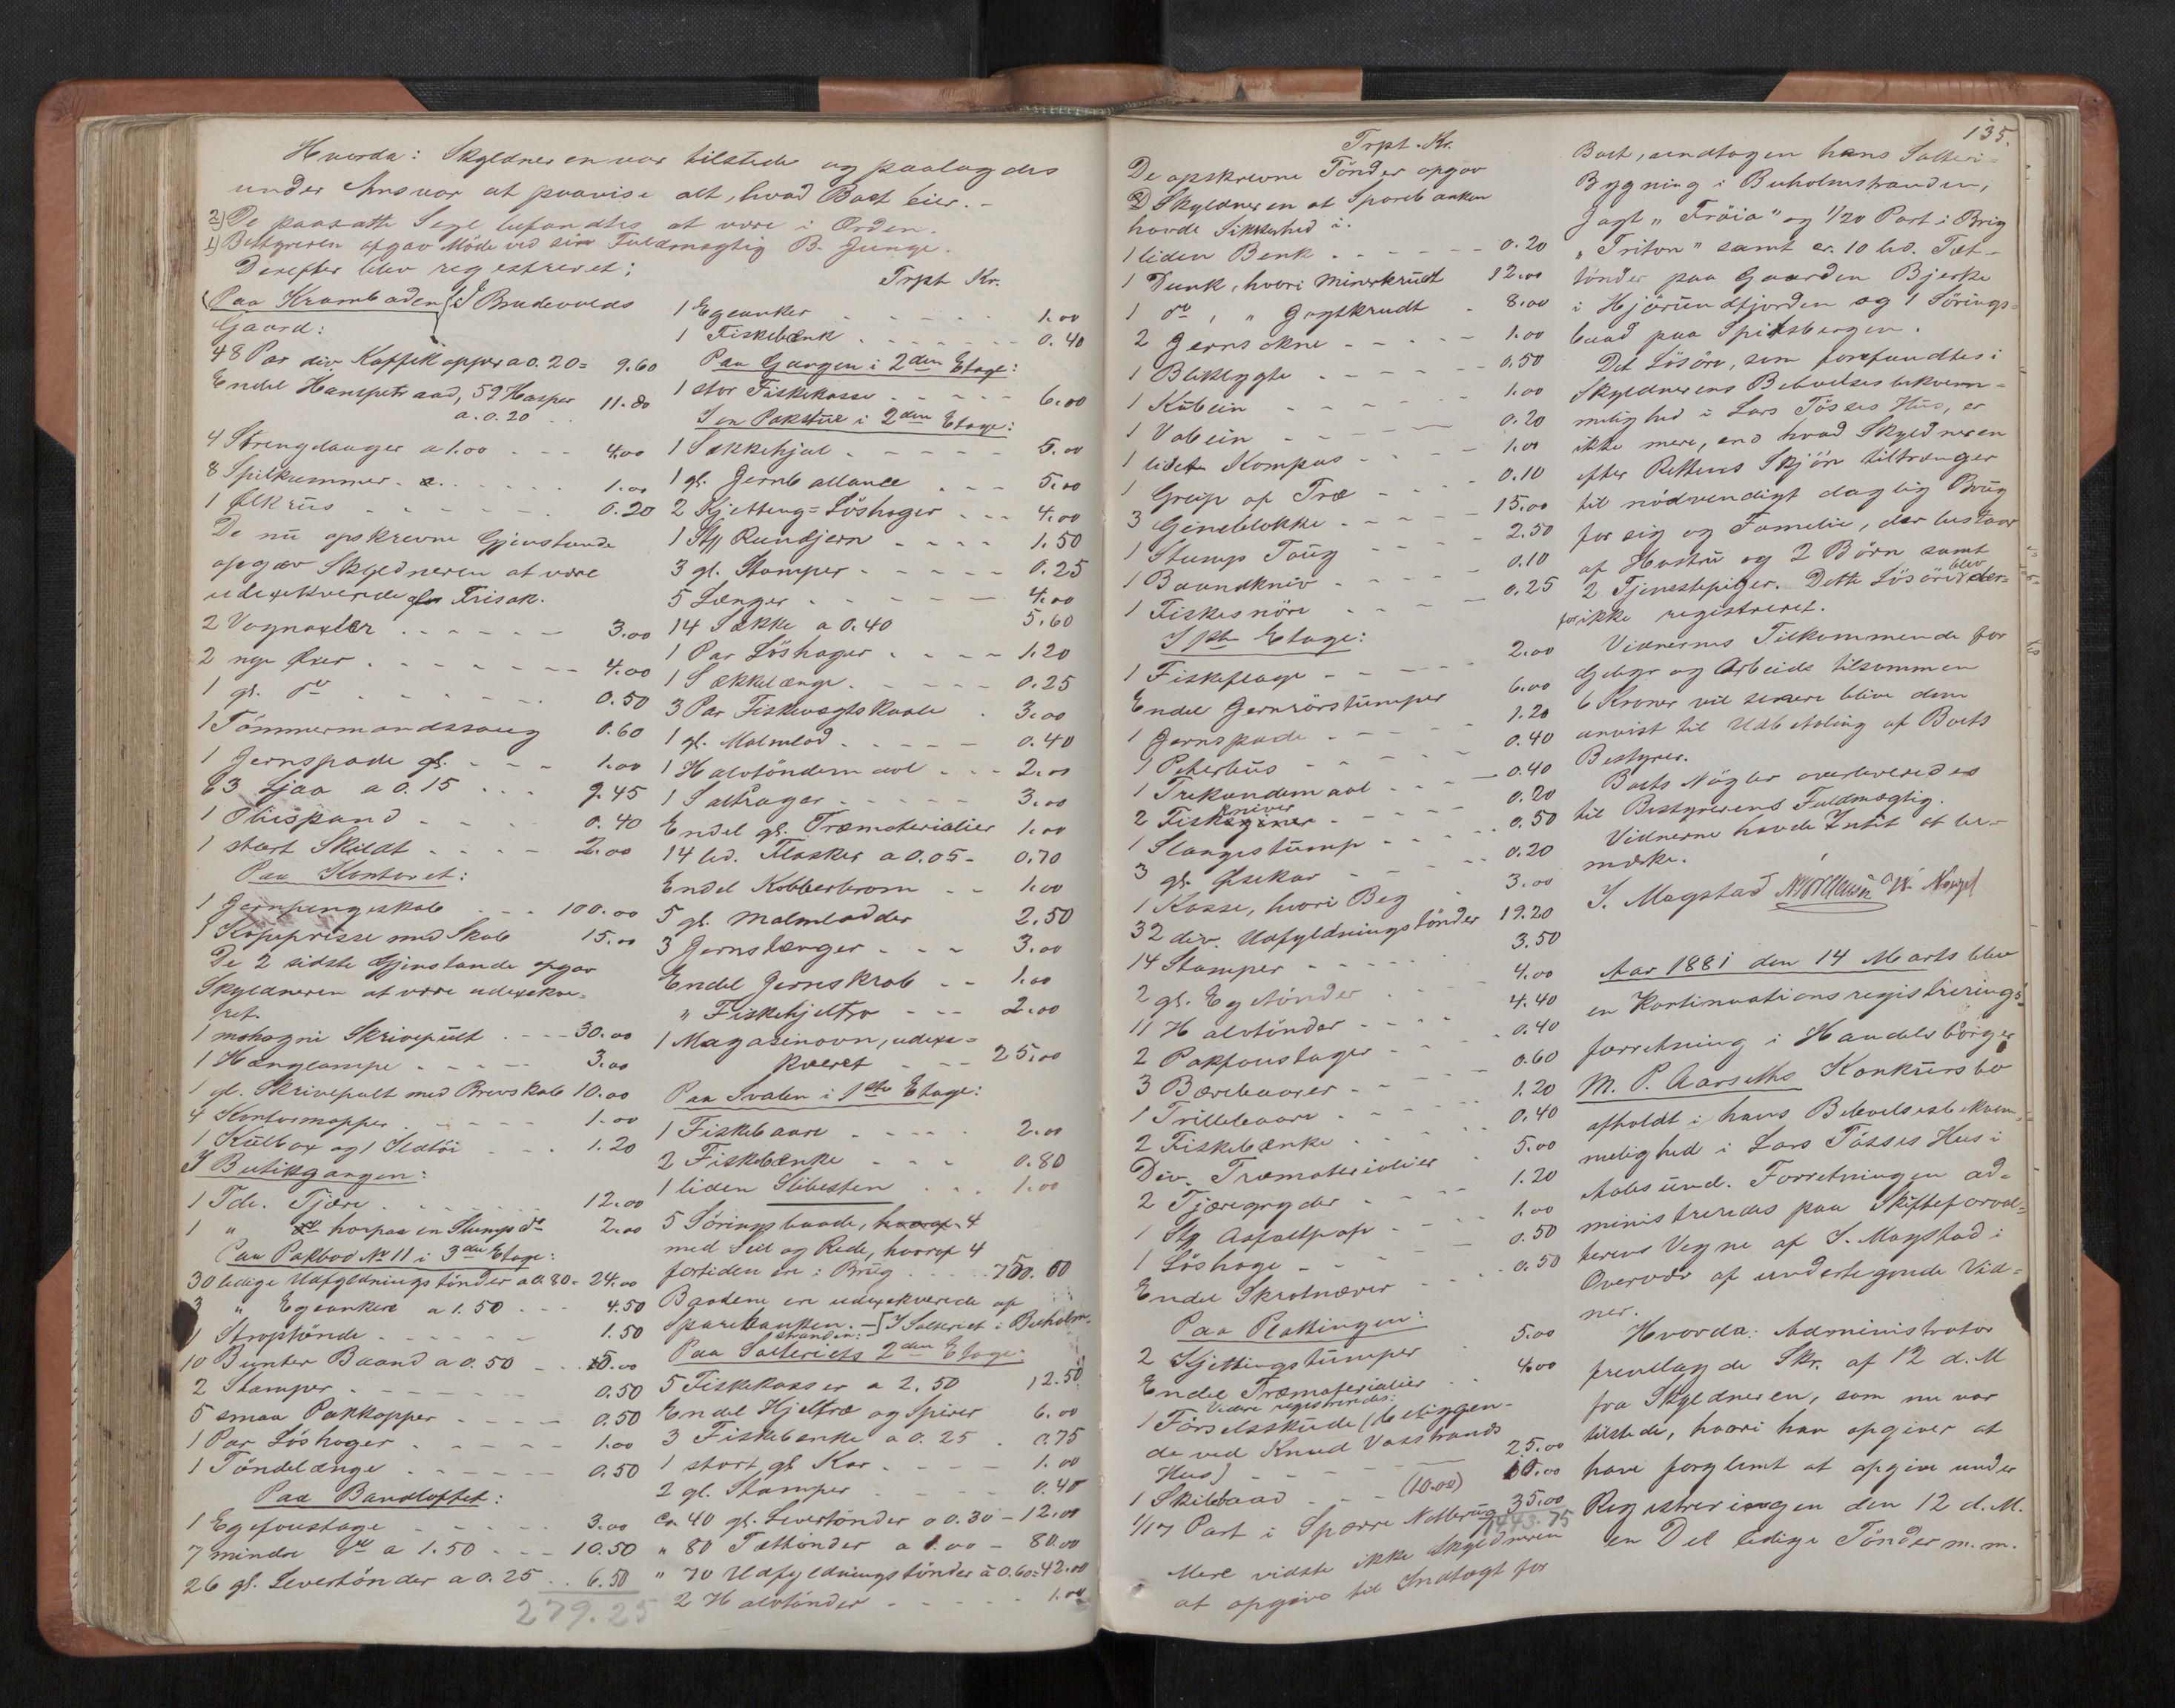 Hvorda: Skyldneren var tilstede og paalagdes
under Ansvar at paavise alt, hvad Boet eier. -
2) De paasatte Segl befandtes at være i Orden.
1) Bestyreren afgav Møde ved sin Fuldmægtig B. Junge.
Derefter blev registreret:
Paa Kramboden i Budevolds
Gaard:
48 Par div. Kaffikopper a 0.20 = 9.60
Endel Hampetraad, 59 Hasper
a. 0.20 11.80
4 Strenglauger a 1.00 - - - 4.00
8 Spilkummer - - - 1.00
1 Ølkrus - - - 0.20
De nu opskrevne Gjenstande
opgav Skyldneren at være
udexekverede af Frisak.
2 Vognaxler - - - 3.00
2 nye Øxer - - - 4.00
1 gl. do - - - 0.50
1 Tømmermandssaug 0.60
1 Jernspade gl. - - - 1.00
63 Ljaa a 0.15 - - - 9.45
1 Oliespand - - - 0.40
1 stort Skildt - - - 2.00
Paa Kontoret:
1 Jernpengeskab - - - 100.00
1 Kopepresse med Skab 15.00
De 2 sidste Gjenstande opgav
Skyldneren at være udexekve-
ret.
1 mahogni Skrivepult - - - 30.00
1 Hænglampe - - - 3.00
1 gl. Skrivepult med Brevskab 10.00
4 Kontormapper - - - 1.00
1 Kulbox og 1 Ildtøi - - - 1.20
I Butikgangen:
1 Tde. Tjære - - - 12.00
1 " do hvorpaa en Slump do 2.00
Paa Pakbod No 11 i 3den Etage:
30 ledige Udfyldningstønder a 0.80 = 24.00
3 " Egeankere a 1.50 - - - 4.50
1 Stroptønde - - - 1.50
10 Bunter Baand a 0.50 - - - 5.00
2 Stamper - - - 0.50
5 smaa Pakkopper - - - 0.50
1 Par Løshager - - - 1.00
1 Tøndelænge - - - 0.50
Paa Bandloftet:
1 Egefoustage - - - 3.00
7 mindre do a 1.50 - - - 10.50
26 gl. Levertønder a 0.25 - - 6.50
279.25
Trpt Kr.
1 Egeanker - - - 1.00
1 Fiskebænk - - - 0.40
Paa Gangen i 2den Etage:
1 stor Fiskekasse - - - 6.00
I en Pakstue i 2den Etage:
1 Sækkehjul - - - 5.00
1 gl. Jernballance - - - 5.00
2 Kjetteng-Løshager - - - 4.00
1 Stk Rundjern - - - 1.50
3 gl. Stamper - - - 0.25
5 Længer - - - 4.00
14 Sække a 0.40 5.60
1 Par Løshager - - - 1.20
1 Sækkelænge - - - 0.25
3 Par Fiskevægtskaale - 3.00
1 gl. Malmlod - - - 0.40
1 Halvtøndemaal - - - 2.00
1 Saltrager - - - 3.00
Endel gl. Træmaterialier 1.00
14 led. Flasker a 0.05 - 0.70
Endel Kobberkram - - 1.00
5 gl. Malmlodder 2.50
3 Jernstænger - - - 3.00
Endel Jernskrab - - 1.00
" Fiskehjeltræ - - - 2.00
1 Magasinovn, udexe-
kveret - - - 25.00
Paa Svalen i 1ste Etage:
1 Fiskebaare - - - 2.00
2 Fiskebænke - - - 0.80
1 liden Slibesten - - - 1.00
5 Søringsbaade, hvoraf 4
med Seil og Rede, hvoraf 4
fortiden ere i Brug - - - 750.00
Baadene ere udexekverede af
Sparebanken. - I Salteriet i Buholm-
stranden:
Paa Salteriets 2den Etage:
5 Fiskekasser a 2.50 12.50
Endel Hjeltræ og Spirer 6.00
3 Fiskebænke a 0.25 - 0.75
1 stort gl Kar - - - 1.00
2 gl. Stamper 0.40
Ca 40 gl. Levertønder a 0.30 - 12.00
" 80 Tættønder a 1.00 - 80.00
" 70 Udfyldningstønder à 0.60 = 42.00
2 Halvtønder - - - 1.00
135.
Trpt. Kr.
De opskrevne Tønder opgav
Skyldneren at Sparebanken
havde Sikkerhed i.
1 liden Benk - - - 0.20
1 Dunk, hvori Minerkrudt 12.00
1 do, " Jagtkrudt - 8.00
2 Jernsokne - - - 1.00
1 Bliklygte - - - 0.50
1 Kubein - - - 1.00
1 Vabein - - - 0.20
1 lidet Kompas - - - 1.00
1 Greip af Træ - - - 0.10
3 Gineblokke - - - 15.00
1 Stump Taug - - - 2.50
1 Baandkniv - - - 0.10
1 Fiskesnøre - - - 0.25
I 1ste Etage:
1 Fiskeflage - - - 2.00
Endel Jernrørstumper 6.00
1 Jernspade - - - 1.20
1 Peterhus - - - 0.40
1 Trekandemaal - - - 0.40
2 Fiskekniver - - - 0.20
1 Slangestump - - - 0.50
3 gl. Øsekar - - 0.20
1 Kasse, hvori Beg 3.00
32 div. Udfyldningstønder 19.20
14 Stamper - - - 3.50
2 gl. Egetønder - - - 4.00
11 Halvtønder - - - 4.40
2 Pakfoustager - - - 0.40
3 Bærebaarer - - - 0.60
1 Trillebaare - - - 1.20
2 Fiskebænke - - - 0.40
Div. Træmaterialier - 5.00
2 Tjæregryder - - - 1.20
1 Stk Asfaltpap - - - 1.00
1 Løshage - - - 0.50
Endel Skrotnæver - - - 0.50
Paa Plattingen:
2 Kjettingstumper 5.00
Endel Træmaterialier - - 4.00
Videre registreredes:
1 Førselsskude (beliggen-
de ved Knud Vasstrands
Hus) - - - 25.00
1 Skibbaad - - - (10.00) 10.00
35.00
1/17 Part i Spærre Notbrug
1443.75
Mere vidste ikke Skyldneren
at opgive til Indtægt for
Boet, undtagen hans Salteri-
Bygning i Buholmstranden,
Jagt "Frøia" og 1/20 Part i Brig
"Triton" samt ca. 10 led. Tæt-
tønder paa Gaarden Bjerke
i Hjørundfjorden og 1 Sørings-
baad paa Spitsbergen.
Det Løsøre, som forefandtes i
Skyldnerens Beboelsesbekvem-
melighed i Lars Tøsses Hus, er
ikke mere, end hvad Skyldneren
efter Rettens Skjøn tiltrænger
til nødvendigt daglig Brug
for sig og Familie, der bestaar
af Hustru og 2 Børn samt
2 Tjenestepiger. Dette Løsøre blev der-
for ikke registreret.
Vidnernes Tilkommende for
Gebyr og Arbeide tilsammen
6 Kroner vil senere blive dem
anvist til Udbetaling af Boets
Bestyrer.
Boets Nøgler overleveredes
til Bestyrerens Fuldmægtig.
Vidnerne havde Intet at be-
mærke.
I. Magstad
Aar 1881 den 14 Marts blev
en Kontinuationsregistrerings-
forretning i Handelsborger
M. P. Aarseths Konkursbo
afholdt i hans Beboelsesbekvem-
melighed i Lars Tøsses Hus i
Aalesund. Forretningen ad-
ministreredes paa Skifteforval-
terens Vegne af I. Magstad i
Overvær af undertegnede Vid-
ner.
Hvorda: Administrator
fremlagde Skr. af 12 d. M
fra Skyldneren, som nu var
tilstede, hvori han opgiver at
have forglemt at opgive under
Registreringen den 12 d. M.
en Del ledige Tønder m. m.